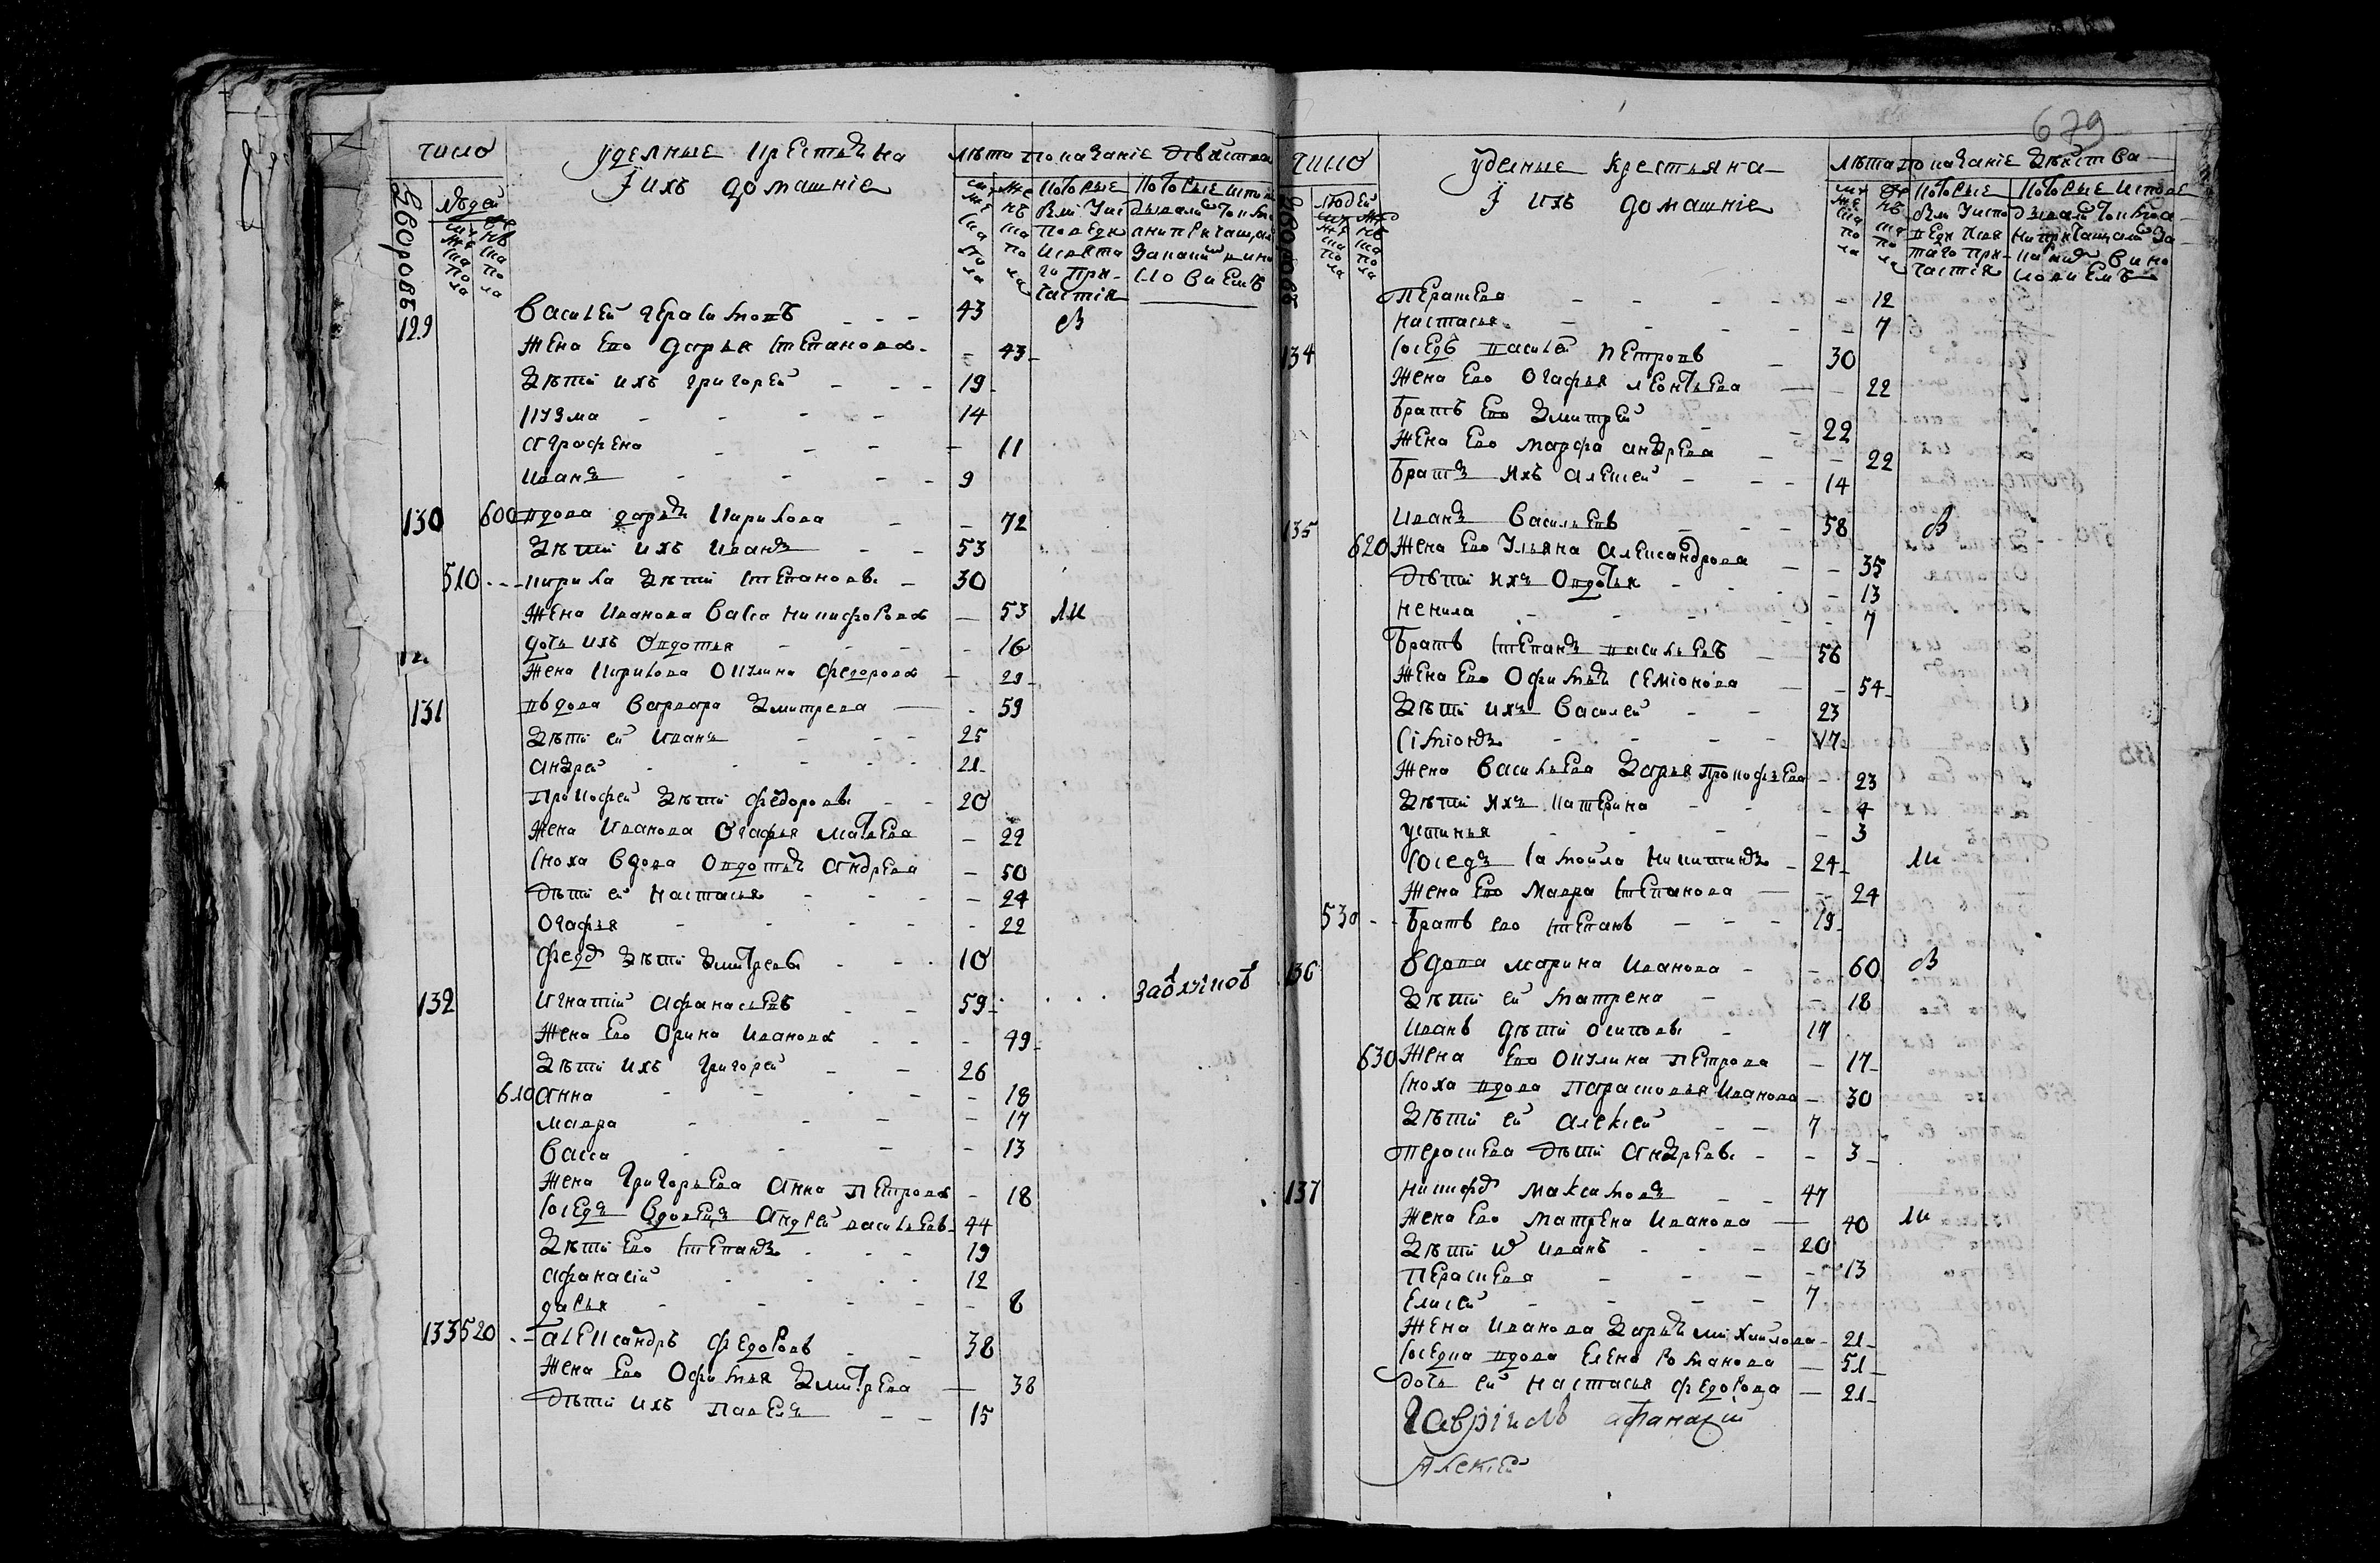 число уделные крестьяна лѣта показаніе дѣиства
Ӏ ихъ домашніе
дворовъ людей
мужеска пола женска пола
которые были у исповеди и святаго причастія
129 василей герасимовъ - - - 43 в
жена ево дарья степанова - 43
дѣти ихъ григорей - - - 19
кузма - - - - 14
аграфена - - - - 11
иванъ - - - - 9
130 600 вдова дарья кирилова - - 72
дѣти ихъ иванъ - - 53
510 - - - кирила дѣти степановы - 30
жена иванова васса никифорова - 53 ли
дочь ихъ овдотья - - - 16
жена кирилова окулина федорова - 29
131 вдова варвара дмитрева - - 59
дѣти ей иванъ - - - 25
андрей - - - - - 21
прокофей дѣти федоровы - - 20
жена иванова огафья матвева - 22
сноха вдова овдотья андрева - 50
дѣти ей настасья - - - 24
огафья - - - - - 22
федоръ дѣти дмитревы - - - 10
132 игнатий афанасьевъ - - 59 . . . .
жена ево орина иванова - - - 49
дѣти ихъ григорей - - 26
610 анна - - - - - 18
мавра - - - - 17
васса - - - - 13
жена григорьева анна петрова - 18
соседъ вдовецъ андрей васильевъ 44
дѣти ево степанъ - - - 19
афанасій - - - - 12
дарья - - - - - 8
133 520 - - александръ федоровъ - - 38
жена ево офимья дмитрева — 38
дѣти ихъ павелъ - - 15
679
число уделные крестьяна лѣта показаніе дѣиства
Ӏ ихъ домашніе
дворовъ людей
мужеска пола женска пола
которые были у исповеди и святаго причастія
перасковя - - - - - 12
настасья - - - - - 7
134 соседъ василей петровъ - 30
жена ево огафья леонтьева — - 22
братъ ево дмитрей - - 22
жена ево марфа андрева - - 22
братъ ихъ алексей - - - 14
135 иванъ васильевъ - - - 58 в
620 жена ево ульяна александрова - - 35
дѣти ихъ овдотья - - - - 13
ненила - - - - - 7
братъ степанъ васильевъ — 56
жена ево офимья семіонова — - 54
дѣти ихъ василей - - 23
сіміонъ - - - - - 17
жена васильева дарья прокофьева - 23
дѣти ихъ катерина - - - 4
устинья - - - - - 3
соседъ самойла никитинъ - 24 ли
жена ево мавра степанова — - 24
530 - - братъ ево степанъ — - - 19
136 вдова марина иванова - - 60 в
дѣти ей матрена - - 18
иванъ дѣти осиповы - 17
630 жена ево окулина петрова — 17
сноха вдова парасковья иванова - 30
дѣти ей алексей - - 7
перасковя дѣти андревы - - 3
137 никифоръ максимовъ - - 47
жена ево матрена иванова — 40 ли
дѣти ихъ иванъ - - - 20
перасковя - - - - 13
елисей - - - - 7
жена иванова дарья михайлова - 21
соседка вдова елена романова — 51
дочь ей настасья федорова — 21
гавріилъ афанасій
алексій